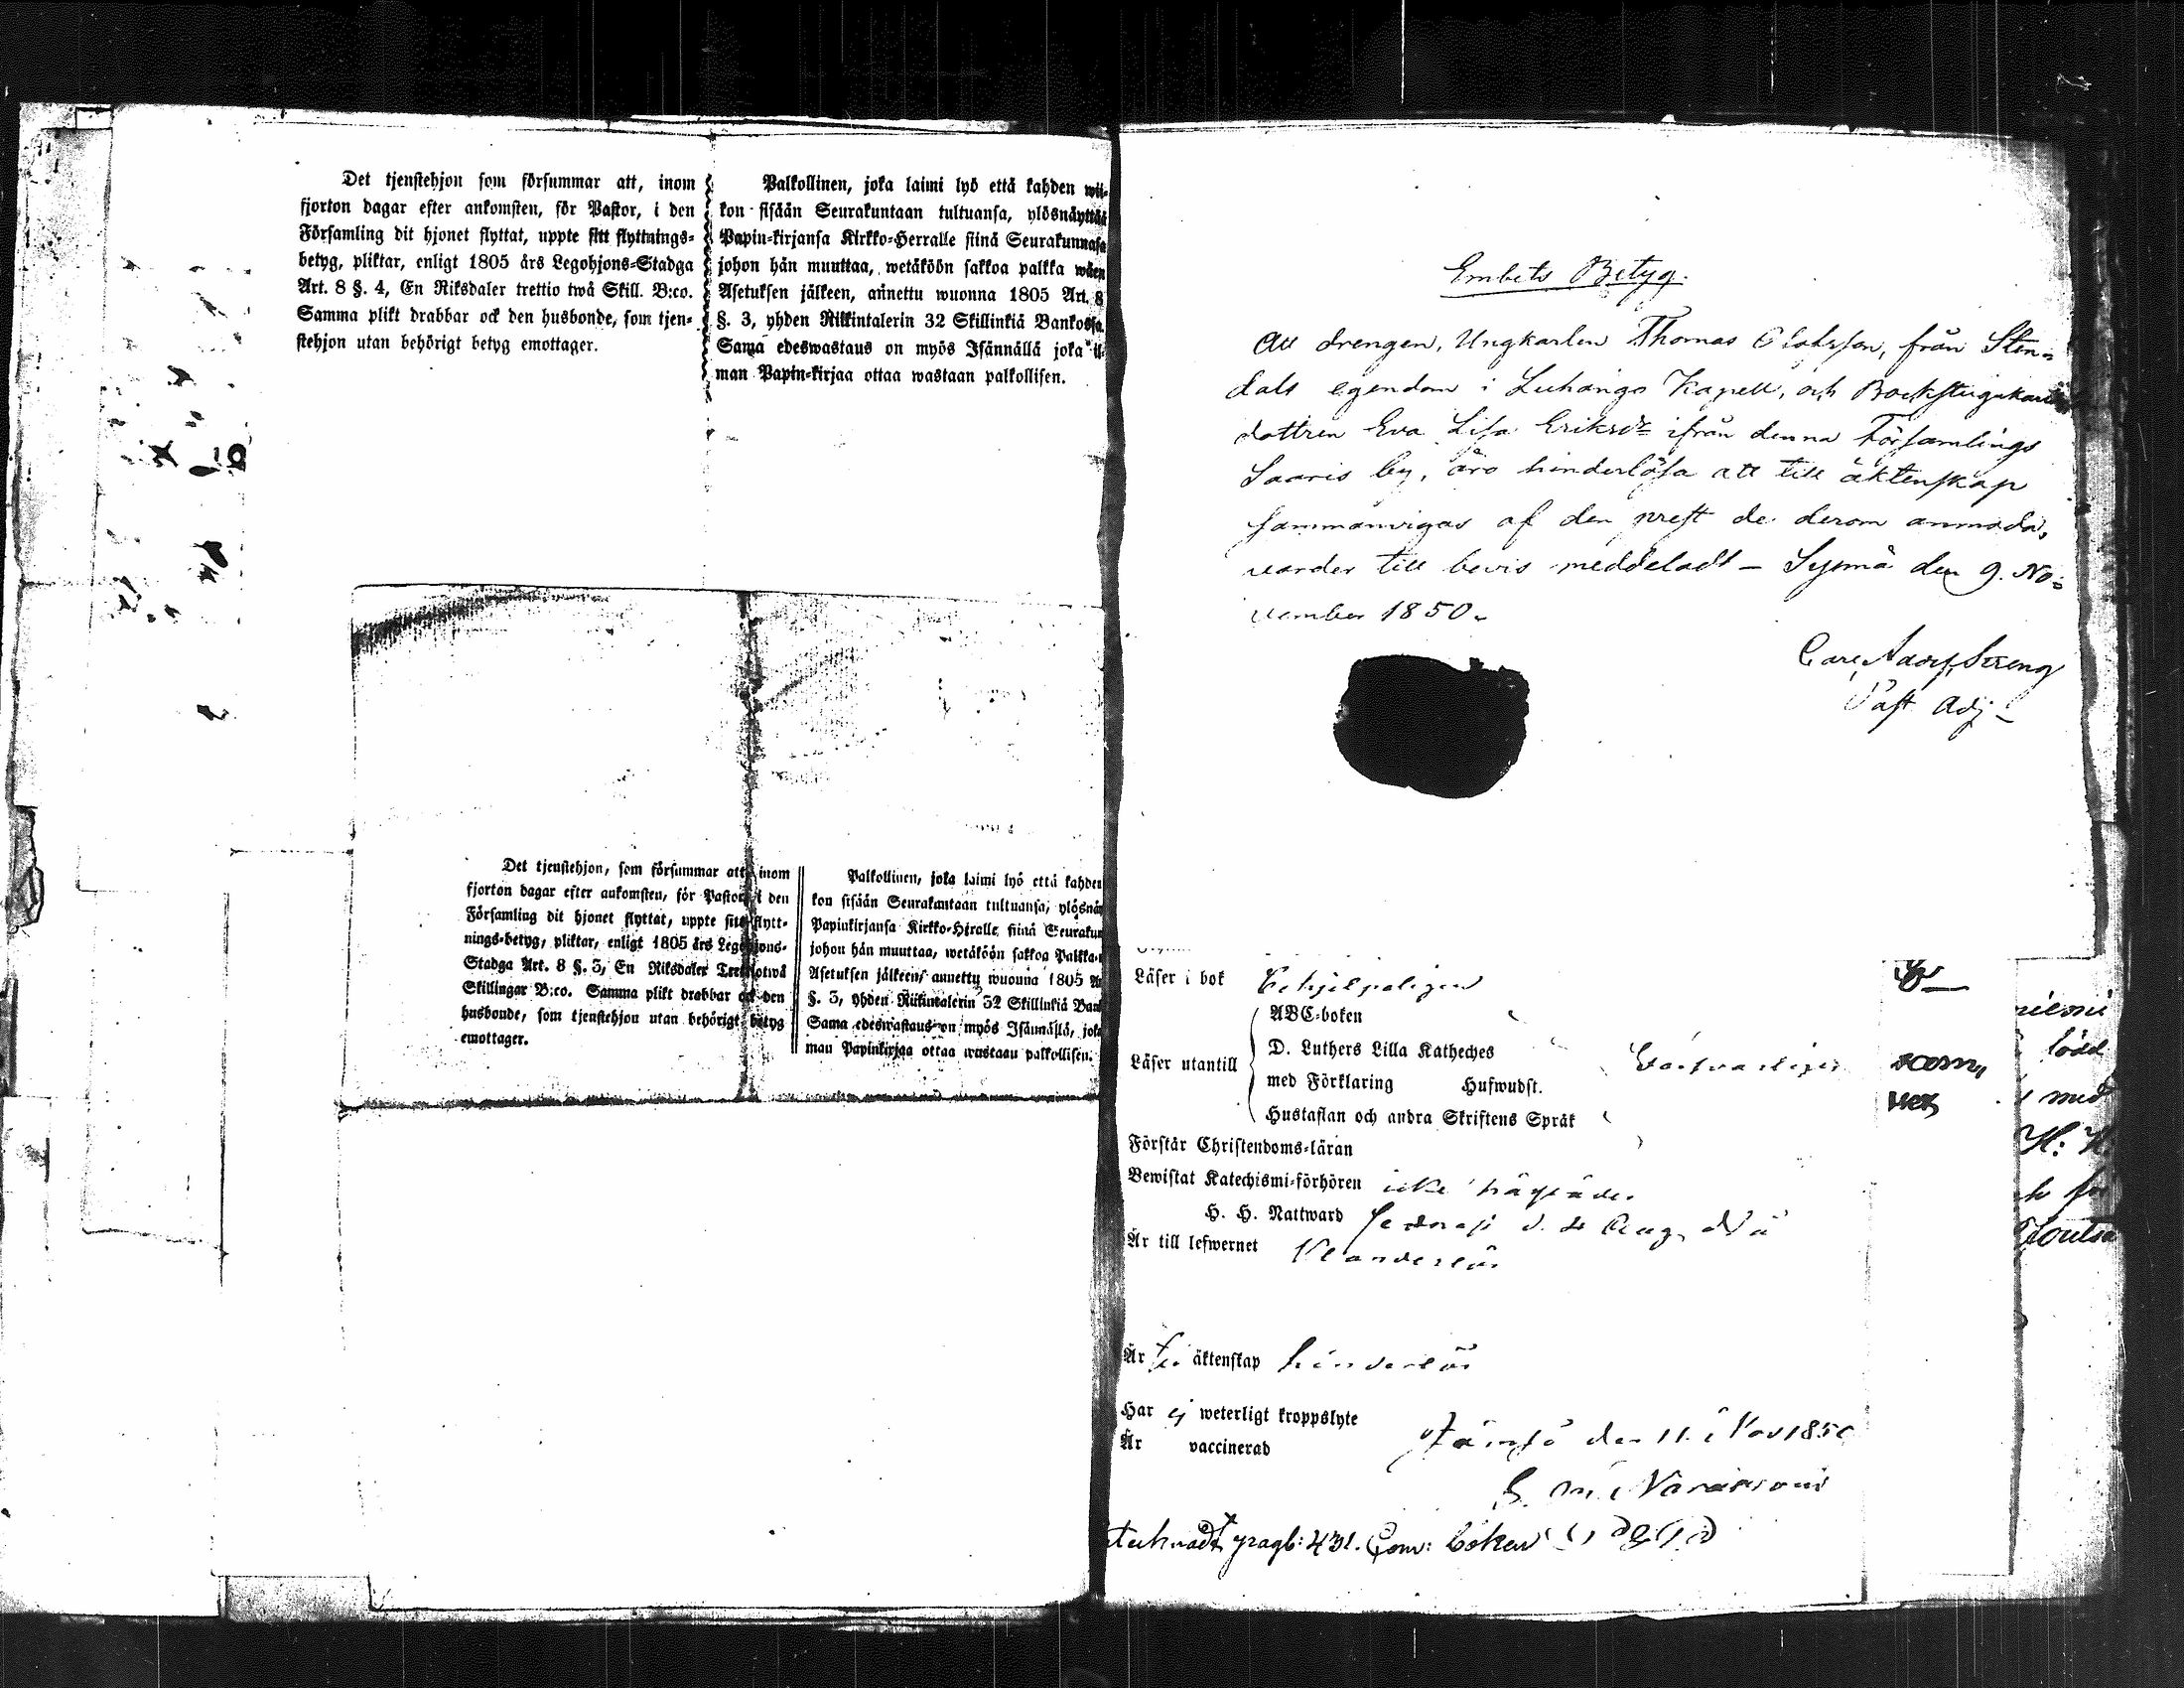 Det tjenstehjon som försummar att, inom
fjorton dagar efter ankomsten, för Pastor, i den
Församling dit hjonet flyttat, uppte sitt flyttnings-
betyg, pliktar, enligt 1805 års Legohjons-Stadga
Art. 8 §. 4, En Riksdaler trettio twå Skill. B:co.
Samma plikt drabbar ock den husbonde, som tjen-
stehjon utan behörigt betyg emottager.
Palkollinen, joka laimi lyö että kahden wii-
kon sisään Seurakuntaan tultuansa, ylösnäyttää
Papin-kirjansa Kirkko-Herralle siinä Seurakunnasa
johon hän muuttaa, wetäköön sakkoa palkka wäen
Asetuksen jälkeen, annettu wuonna 1805 Art. 8
§. 3, yhden Riikintalerin 32 Skillinkiä Bankossa.
Sama edeswastaus on myös Isännällä joka il-
man Papin-kirjaa ottaa wastaan palkollisen.
Det tjenstehjon, som försummar att inom
fjorton dagar efter ankomsten, för Pastor i den
Församling dit hjonet flyttat, uppte sitt flytt-
nings-betyg, pliktar, enligt 1805 års Legohjons-
Stadga Art. 8 §. 3, En Riksdaler Trettiotwå
Skillingar B:co. Samma plikt drabbar ock den
husbonde, som tjenstehjon utan behörigt betyg
emottager.
Palkollinen, joka laimi lyö että kahden
kon sisään Seurakuntaan tultuansa, ylösnäy
Papinkirjansa Kirkko-Herralle siinä Seurakun
johon hän muuttaa, wetäköön sakkoa Palkka-
Asetuksen jälkeen, annettu wuonna 1805 A
§. 3, yhden Riikintalerin 32 Skillinkiä Bank
Sama edeswastaus on myös Isännällä, joka
man Papinkirjaa ottaa wastaan palkollisen.
Embets Betyg.
Att drengen, Ungkarlen Thomas Olofsson, från Sten-
dals egendom i Luhango Kapell, och Backstugukarls
dottren Eva Lisa Eriksdr ifrån denna Församlings
Saaris by, äro hinderlösa att till äktenskap
sammanvigas af den prest de derom anmoda,
varder till bevis meddeladt - Sysmä den 9. No-
vember 1850.
Carl Adolf Streng
Past Adj
Läser i bok
ABC-boken
D. Luthers Lilla Katheches
Läser utantill
med Förklaring Hufwudst.
Hustaflan och andra Skriftens Språk
Förstår Christendoms-läran
Bewistat Katechismi-förhören icke
H. H. Nattward
Är till lefwernet Klanderlös
Är till äktenskap hinderlös
Har ej weterligt kroppslyte
Är vaccinerad
Jämsä den 11 Nov 1850
lödd
med
H: H.